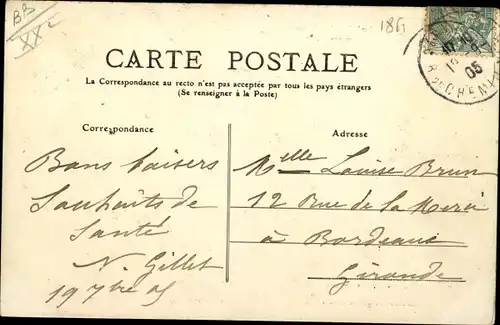 BB
XXe
18G
CARTE POSTALE
La Correspondance au recto n'est pas acceptée par tous les pays étrangers
(Se renseigner à la Poste)
Correspondance
Bons baisers
Souhaits de
Santé
N. Gillet
19 7bre 05
Adresse
Melle Louise Brun
12 Rue de la Merci
à Bordeaux
Gironde
05